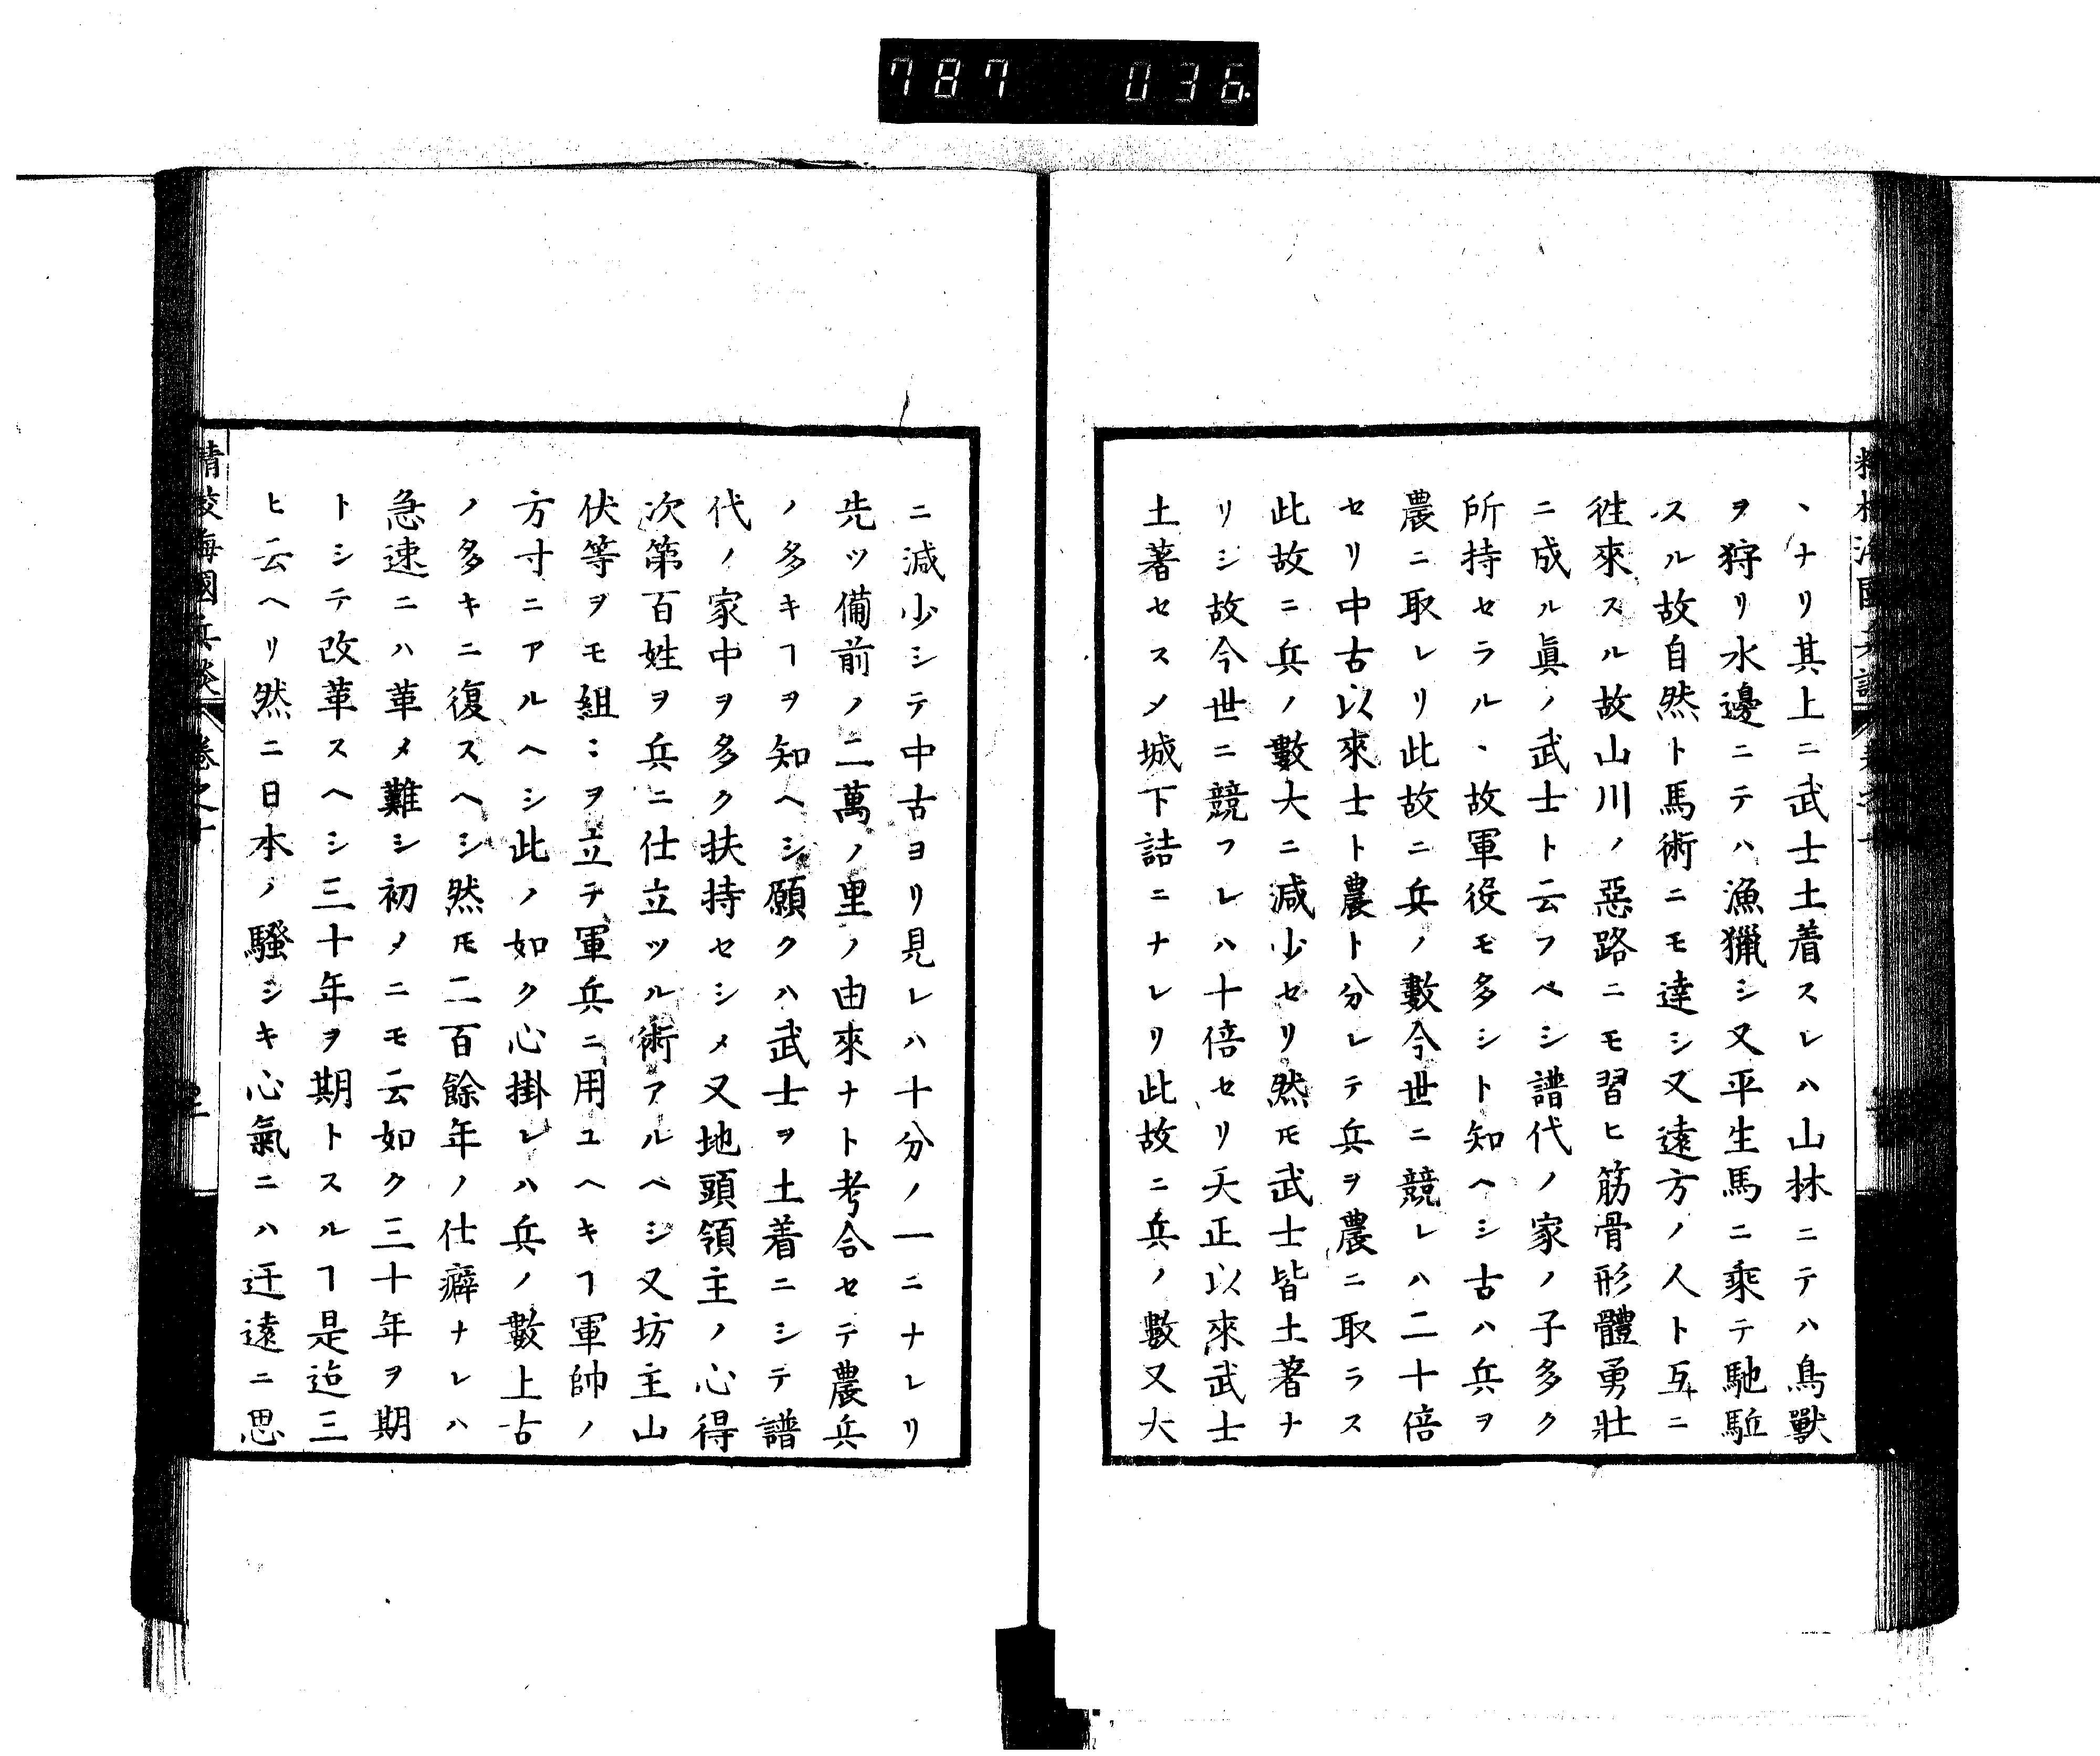 787 036
ヽナリ其上ニ武士土着スレハ山林ニテハ鳥獸
ヲ狩リ水邊ニテハ漁獵シ又平生馬ニ乘テ馳駈
スル故自然ト馬術ニモ達シ又遠方ノ人ト互ニ
徃來スル故山川ノ惡路ニモ習ヒ筋骨形體勇壯
ニ成ル眞ノ武士ト云フベシ譜代ノ家ノ子多ク
所持セラルヽ故軍役モ多シト知ヘシ古ハ兵ヲ
農ニ取レリ此故ニ兵ノ數今世ニ競レハ二十倍
セリ中古以來士ト農ト分レテ兵ヲ農ニ取ラス
此故ニ兵ノ數大ニ減少セリ然𪜈武士皆土著ナ
リシ故今世ニ競フレハ十倍セリ天正以來武士
土著セスメ城下詰ニナレリ此故ニ兵ノ數又大
ニ減少シテ中古ヨリ見レハ十分ノ一ニナレリ
先ツ備前ノ二萬ノ里ノ由來ナト考合セテ農兵
ノ多キヿヲ知ヘシ願クハ武士ヲ土着ニシテ譜
代ノ家中ヲ多ク扶持セシメ又地頭領主ノ心得
次第百姓ヲ兵ニ仕立ツル術アルベシ又坊主山
伏等ヲモ組〻ヲ立テ軍兵ニ用ユヘキヿ軍帥ノ
方寸ニアルヘシ此ノ如ク心掛レハ兵ノ數上古
ノ多キニ復スヘシ然𪜈二百餘年ノ仕癖ナレハ
急速ニハ革メ難シ初メニモ云如ク三十年ヲ期
トシテ改革スヘシ三十年ヲ期トスルヿ是迠三
ヒ云ヘリ然ニ日本ノ騷シキ心氣ニハ迂遠ニ思
精校海國兵談 卷之十